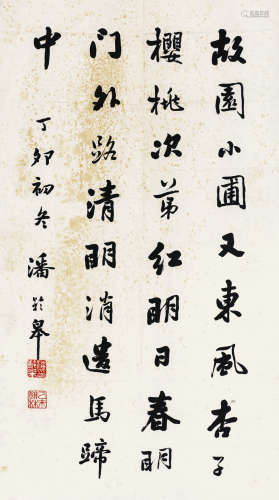 故園小圃又東風杏子
櫻桃次第红明日春明
门外路清明消遣馬蹄
中
丁卯初冬潘龄皋